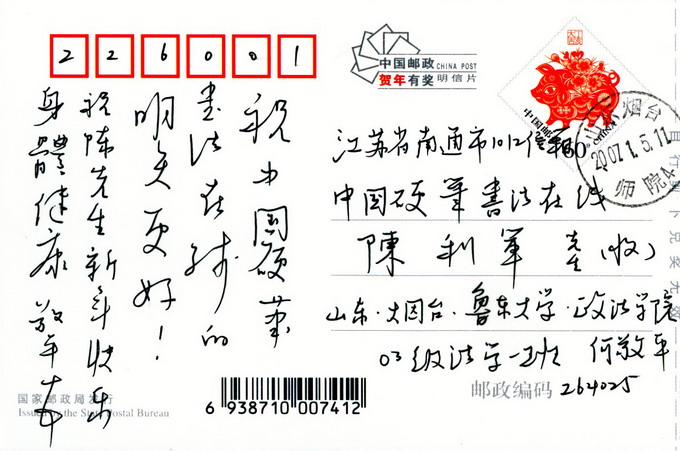 226001
中国邮政 CHINA POST
贺年有奖 明信片
中国邮政
60分
山东烟台
2007.1.5.17
师院4
江苏省南通市1012信箱
中国硬笔書法在线
陳利軍 先生（收）
山东·烟台·鲁东大学·政法学院
03级法学一班 何敬军
邮政编码 264025
祝中國硬筆
書法在线的
明天更好！
祝陈先生新年快乐
身體健康 敬军奉
国家邮政局发行
Issued by the State Postal Bureau
6 938710 007412